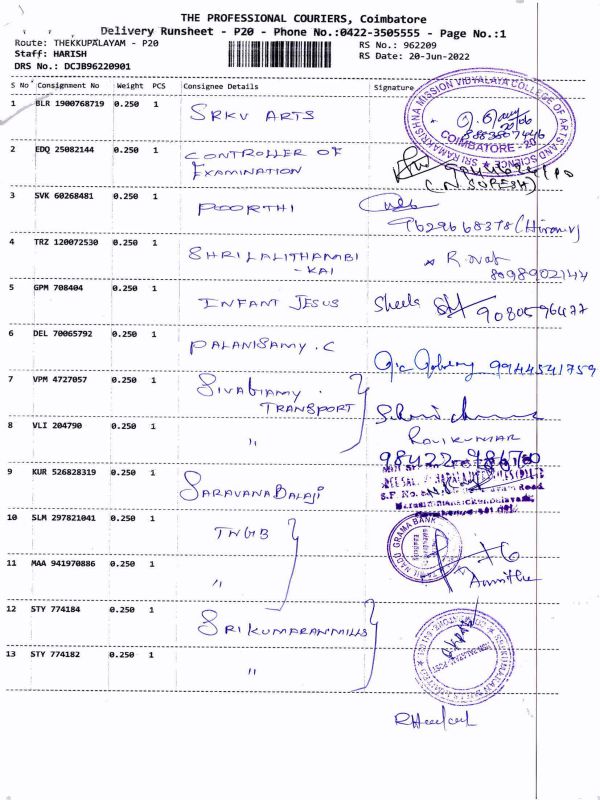 THE PROFESSIONAL COURIERS, Coimbatore
Delivery Runsheet - P20 - Phone No.:0422-3505555 - Page No.:1
Route: THEKKUPALAYAM - P20
RS No.: 962209
Staff: HARISH
RS Date: 20-Jun-2022
DRS No.: DCJB96220901
S No Consignment No Weight PCS Consignee Details Signature
1 BLR 1900768719 0.250 1 SRKV ARTS
SRI RAMAKRISHNA MISSION VIDYALAYA COLLEGE OF ARTS AND SCIENCE
COIMBATORE - 20
2 EDQ 25082144 0.250 1 CONTROLLER OF
EXAMINATION
(C.N SURESH)
3 SVK 60268481 0.250 1 POORTHI
9629668378
4 TRZ 120072530 0.250 1 SHRILALITHAMBI
- KAI
8098902144
5 GPM 708404 0.250 1 INFANT JESUS Sheela
9080596477
6 DEL 70065792 0.250 1 PALANISAMY . C
9944541759
7 VPM 4727057 0.250 1 SIVASAMY .
TRANSPORT
8 VLI 204790 0.250 1 "
RAVIKUMAR
9 KUR 526828319 0.250 1 SARAVANA BALAJI
S.F No.
10 SLM 297821041 0.250 1 TNGB
TAMIL NADU GRAMA BANK
11 MAA 941970886 0.250 1 "
Amitha
12 STY 774184 0.250 1 SRI KUMARAN MILLS
13 STY 774182 0.250 1 "